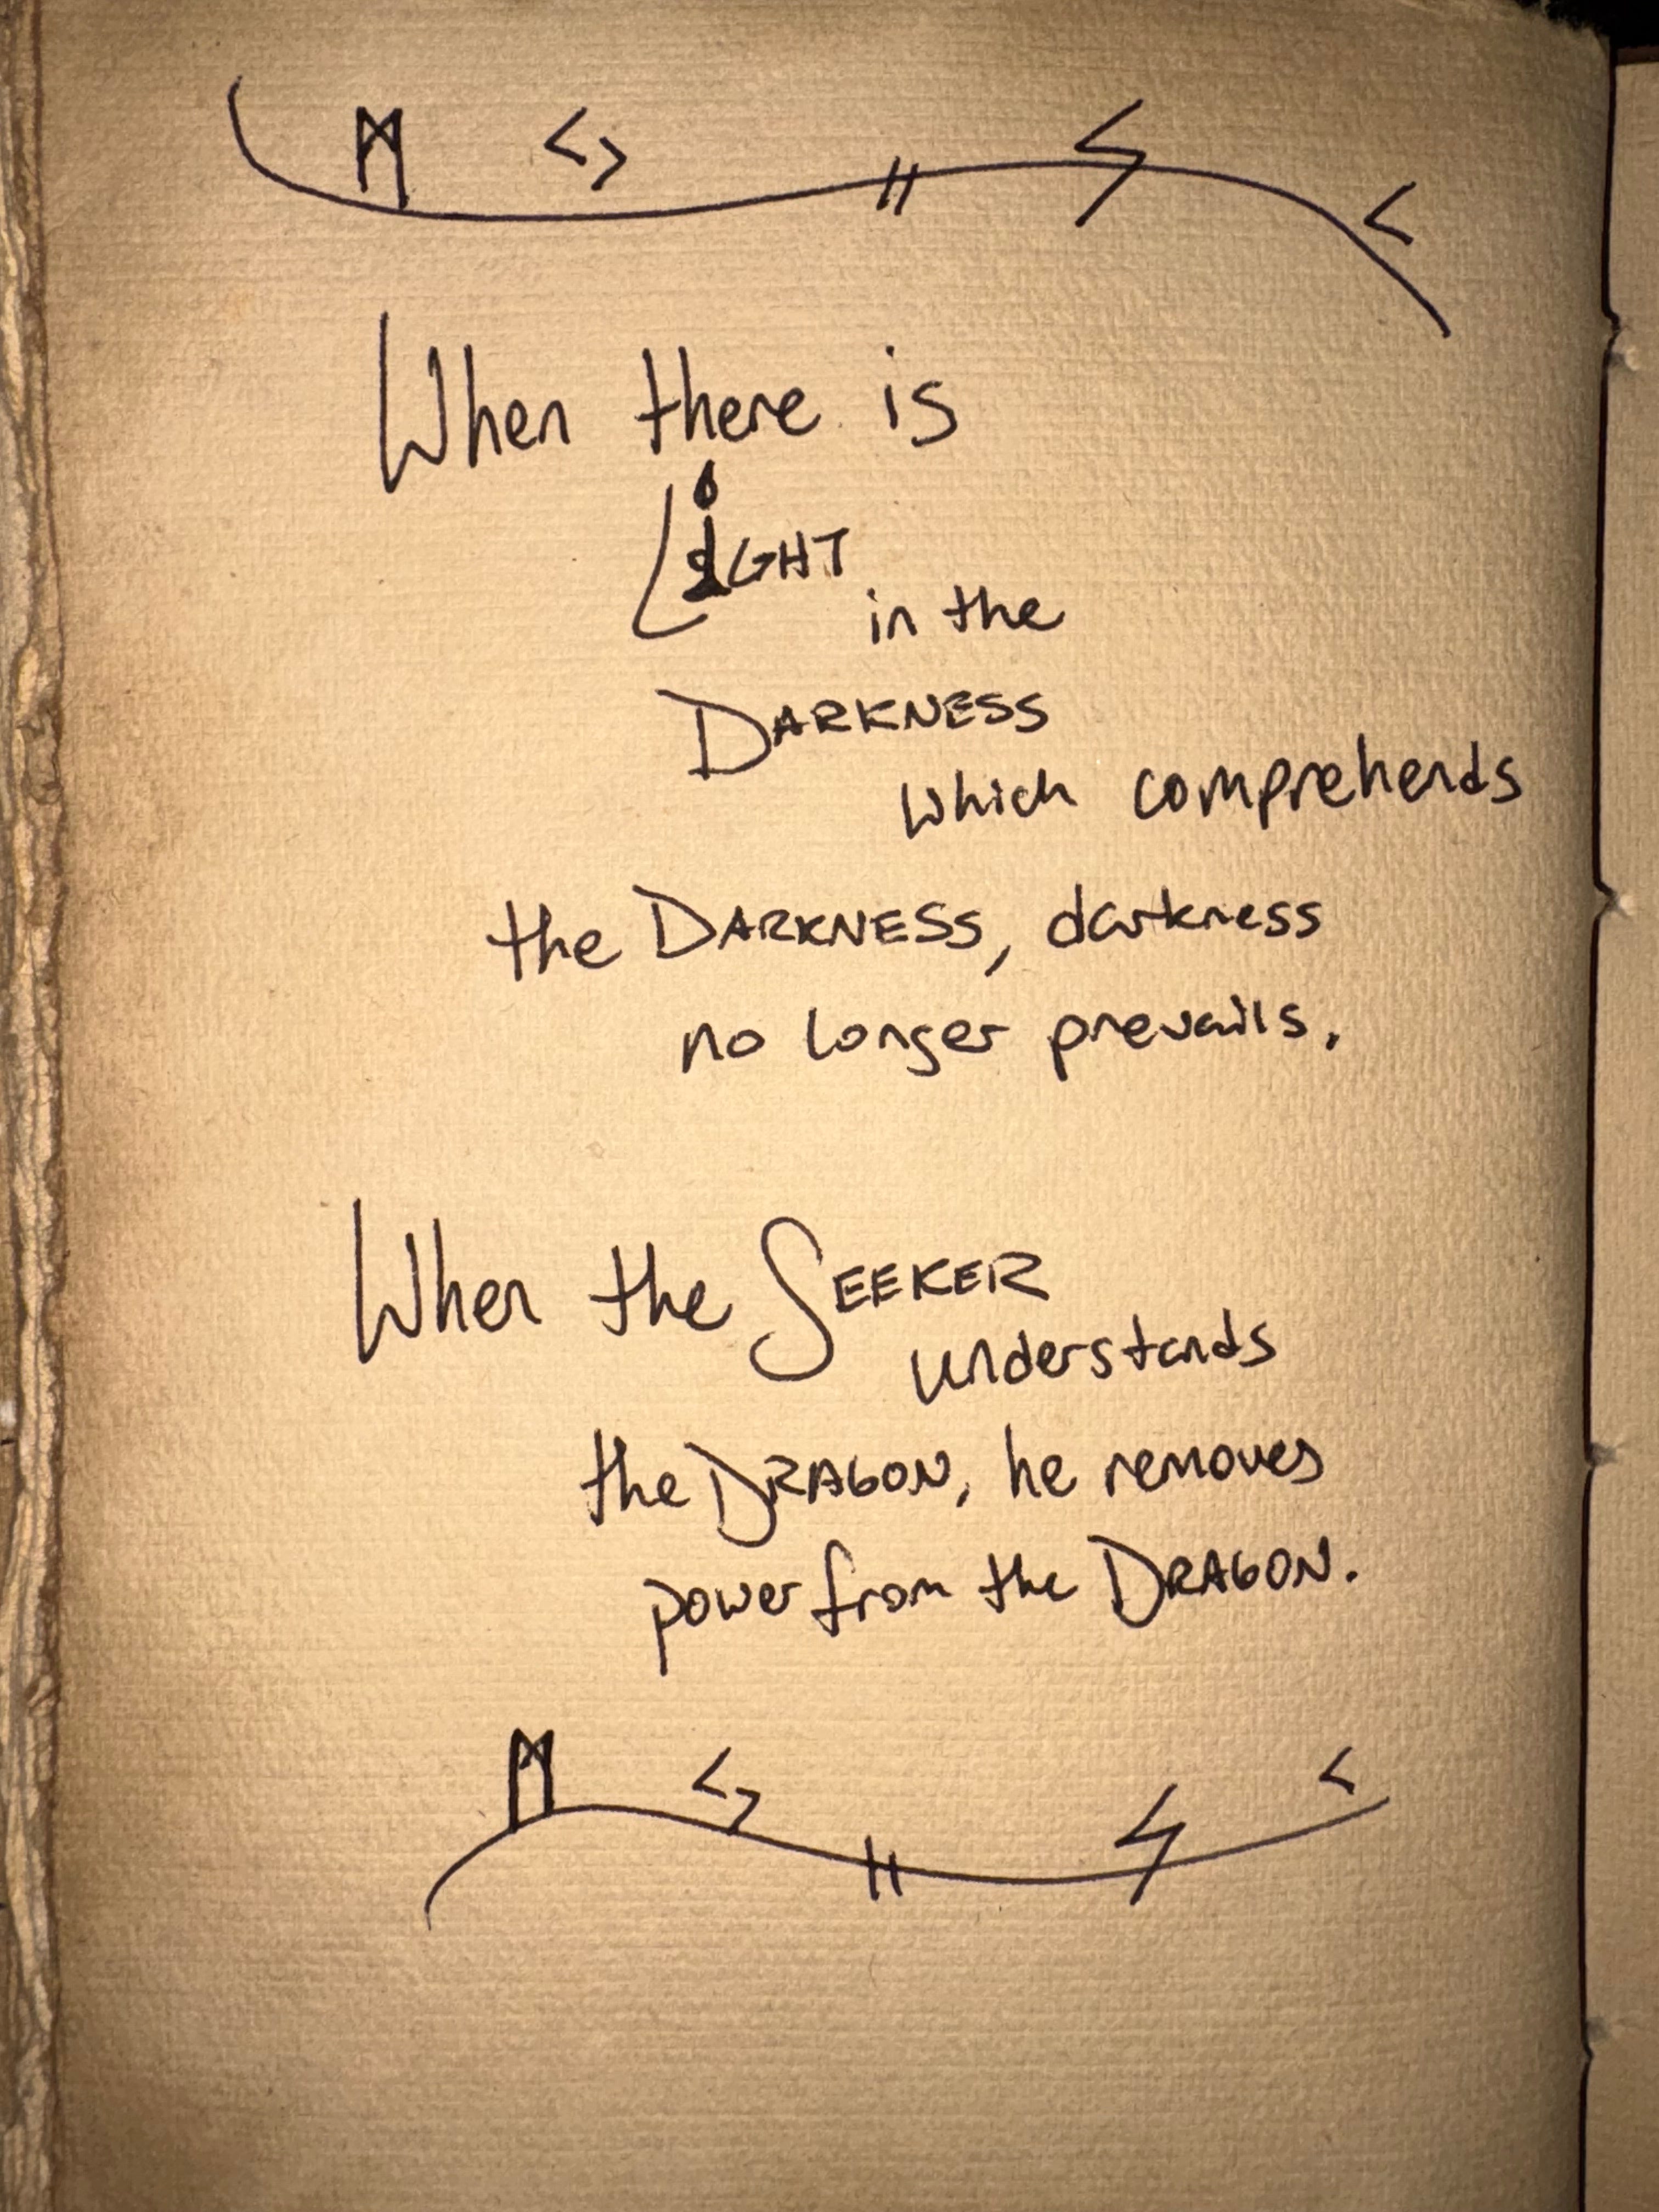 ᛗ ᛃ || ᛋ ᚲ
When there is
LiGHT
in the
DARKNESS
which comprehends
the DARKNESS, darkness
no longer prevails.
When the SEEKER
understands
the DRAGON, he removes
power from the DRAGON.
ᛗ ᛃ || ᛋ ᚲ